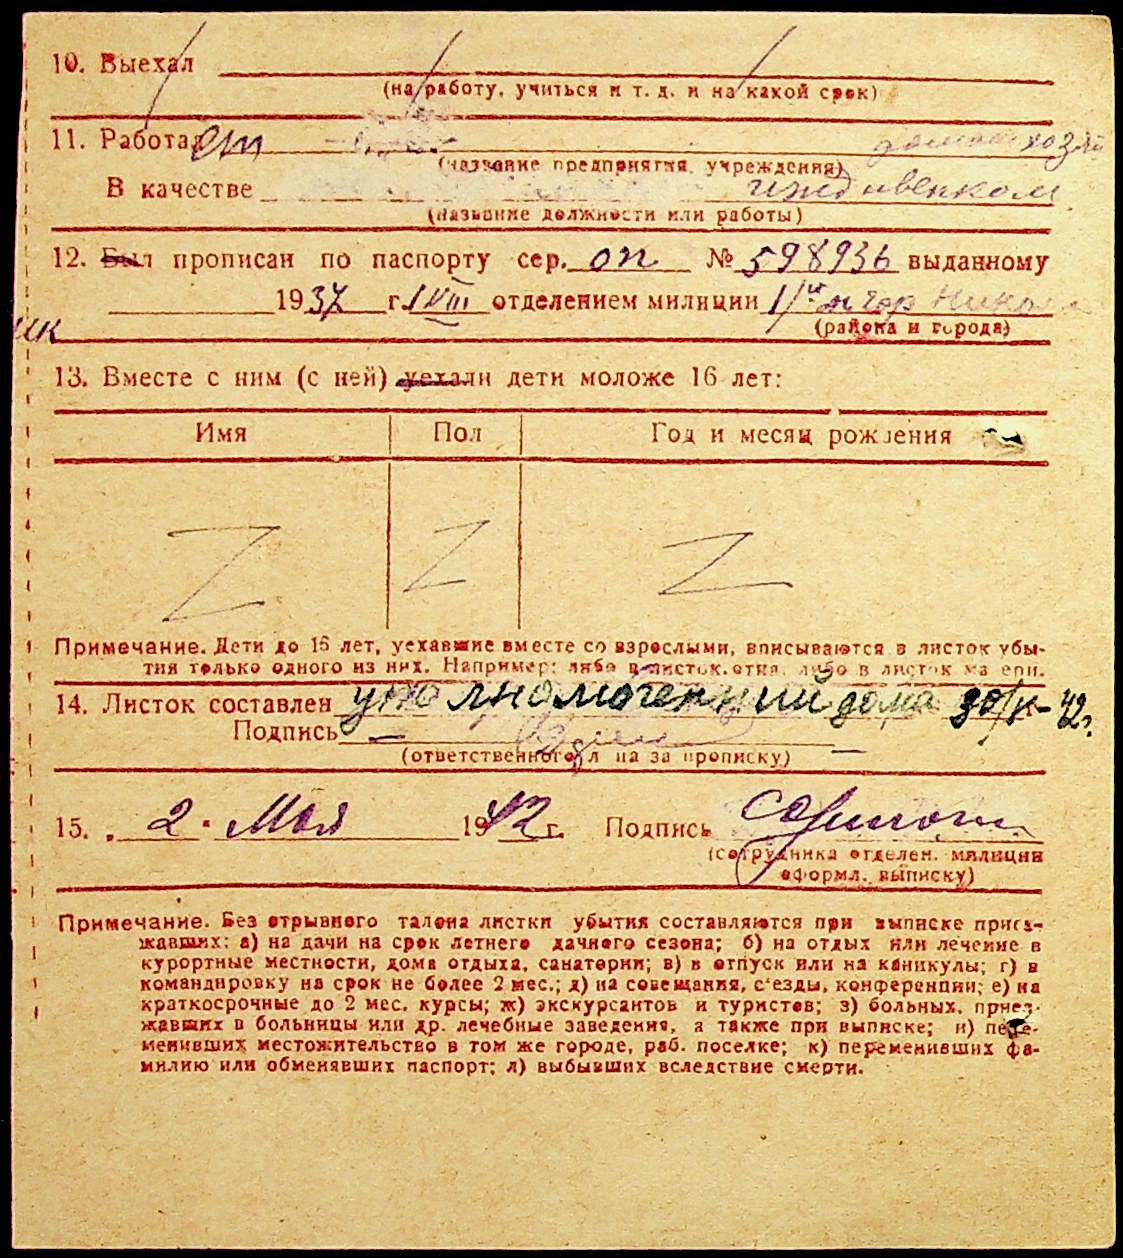 10. Выехал
(на работу, учиться и т. д. и на какой срок)
11. Работал домашн хозяй
(название предприятия, учреждения)
В качестве иждивенком
(название должности или работы)
12. Был прописан по паспорту сер. ОП № 598936 выданному
1937 г. 1 VIII отделением милиции гор Никол
(района и города)
13. Вместе с ним (с ней) уехали дети моложе 16 лет:
Имя Пол Год и месяц рождения
Z Z Z
Примечание. Дети до 16 лет, уехавшие вместе со взрослыми, вписываются в листок убы-
тия только одного из них. Например: либо в листок отца, либо в листок матери.
14. Листок составлен уполномоченний дома 30/IV-42г.
Подпись
(ответственного л ца за прописку)
15. „ 2 " Мая 1942 г. Подпись
(сотрудника отделен. милиции
оформл. выписку)
Примечание. Без отрывного талона листки убытия составляются при выписке приез-
жавших: а) на дачи на срок летнего дачного сезона; б) на отдых или лечение в
курортные местности, дома отдыха, санатории; в) в отпуск или на каникулы; г) в
командировку на срок не более 2 мес.; д) на совещания, с'езды, конференции; е) на
краткосрочные до 2 мес. курсы; ж) экскурсантов и туристов; з) больных, приез-
жавших в больницы или др. лечебные заведения, а также при выписке; и) пере-
менивших местожительство в том же городе, раб. поселке; к) переменивших фа-
милию или обменявших паспорт; л) выбывших вследствие смерти.